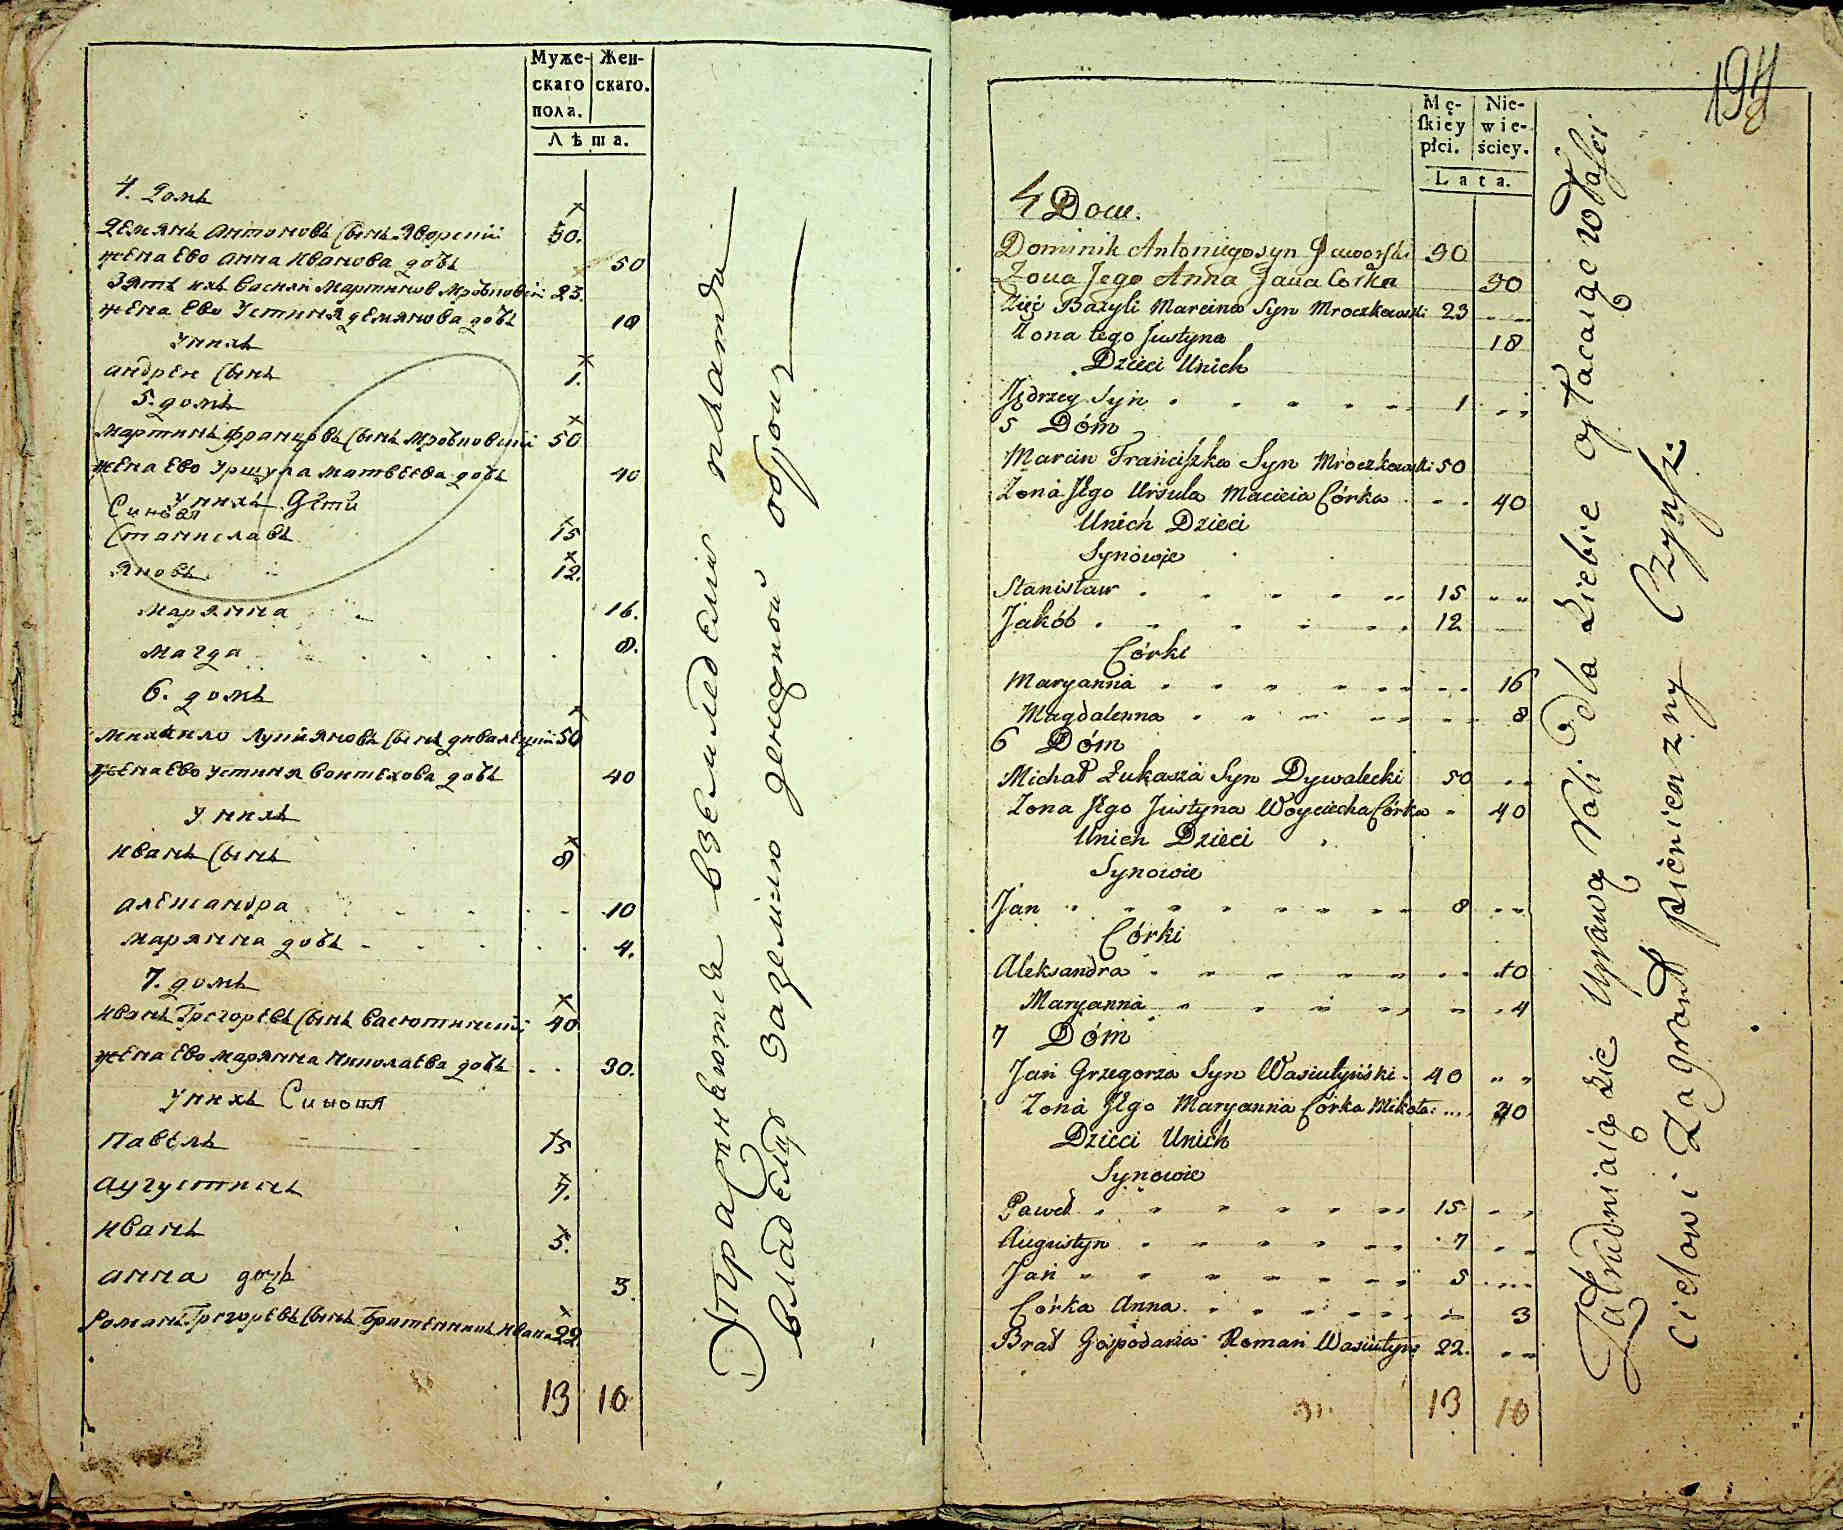 Муже-
скаго
пола.
Жен-
скаго.
Лѣта.
4. Домъ
Демянъ Антоновъ Сынъ Яворскій 50.
жена Ево Анна Иванова дочь 50
Зять ихъ Василій Мартиновъ Мрочковскій 23.
жена Ево Устиня Демянова дочь 18
У нихъ
Андрей Сынъ 1.
5. домъ
Мартинъ Францовъ Сынъ Мрочковскій 50
жена Ево Уршула Матвеева дочь 40
У нихъ Дети
Синовя
Станиславъ 15
Яковъ 12.
Марянна 16.
Магда 8.
6. домъ
Михайло Лукіяновъ Сынъ Дивалецкій 50
жена Ево Устиня Войтехова дочь 40
У нихъ
Иванъ Сынъ 8
Александра 10
Марянна дочь 4.
7. домъ
Иванъ Грегорьевъ Сынъ Васютинскій 40
жена Ево Марянна Николаева дочь 30.
У нихъ Синовя
Павелъ 15
Аугустинъ 7.
Иванъ 5.
Анна дочь 3.
Романъ Грегорьевъ Сынъ Братъ Ивана 22
13 10
Упражняются в земледелию платя
владелцу за землю денежной оброкъ
198
Mę-
skiey
płci.
Nie-
wie-
ściey.
Lata.
4 Dom.
Dominik Antoniego syn Jaworski 50
Żona Jego Anna Jana Corka 50
Zięć Bazyli Marcina Syn Mroczkowski 23
Żona tego Justyna 18
Dzieci Unich
Jędrzey Syn 1
5 Dóm
Marcin Franciszka Syn Mroczkowski 50
Zona Jego Urśula Macieia Córka 40
Unich Dzieci
Synowie
Stanisław 15
Jakób 12
Córki
Maryanna 16
Magdalenna 8
6 Dóm
Michał Łukasza Syn Dywalecki 50
Zona Jego Justyna Woyciecha Córka 40
Unich Dzieci
Synowie
Jan 8
Córki
Aleksandra 10
Maryanna 4
7 Dóm
Jan Grzegorza Syn Wasiutyński 40
Zona Jego Maryanna Córka Mikoła: 30
Dzieci Unich
Synowie
Paweł 15
Augustyn 7
Jan 5
Córka Anna 3
Brat Gospodarza Roman Wasiutyns 22.
13 10
Zatrudniaią sie Uprawą Roli dla siebie opłacaiąc właści
cielowi Zagrunt pienienzny Czynsz.